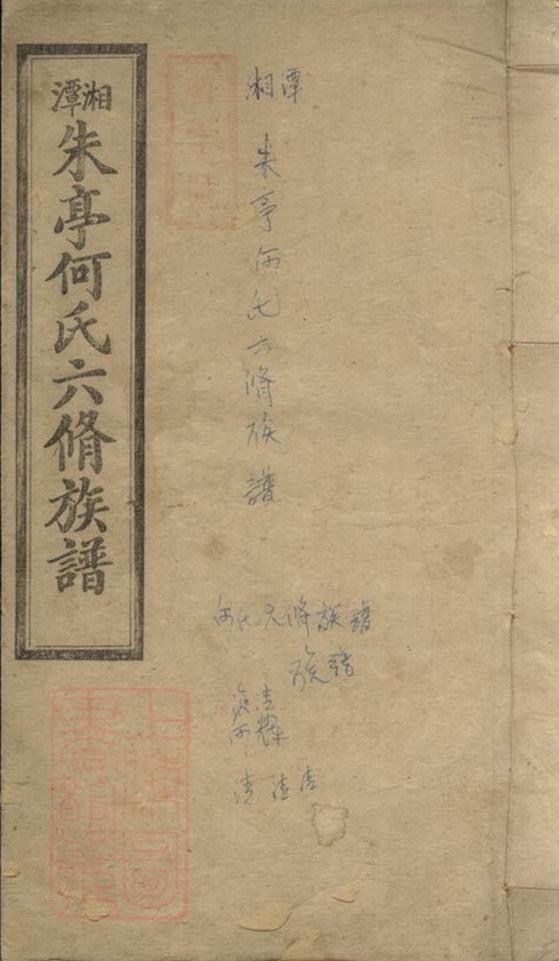 湘潭
朱亭何氏六脩族譜
湘潭
朱亭何氏六脩族譜
何氏六脩族譜
族譜
上海圖書館藏